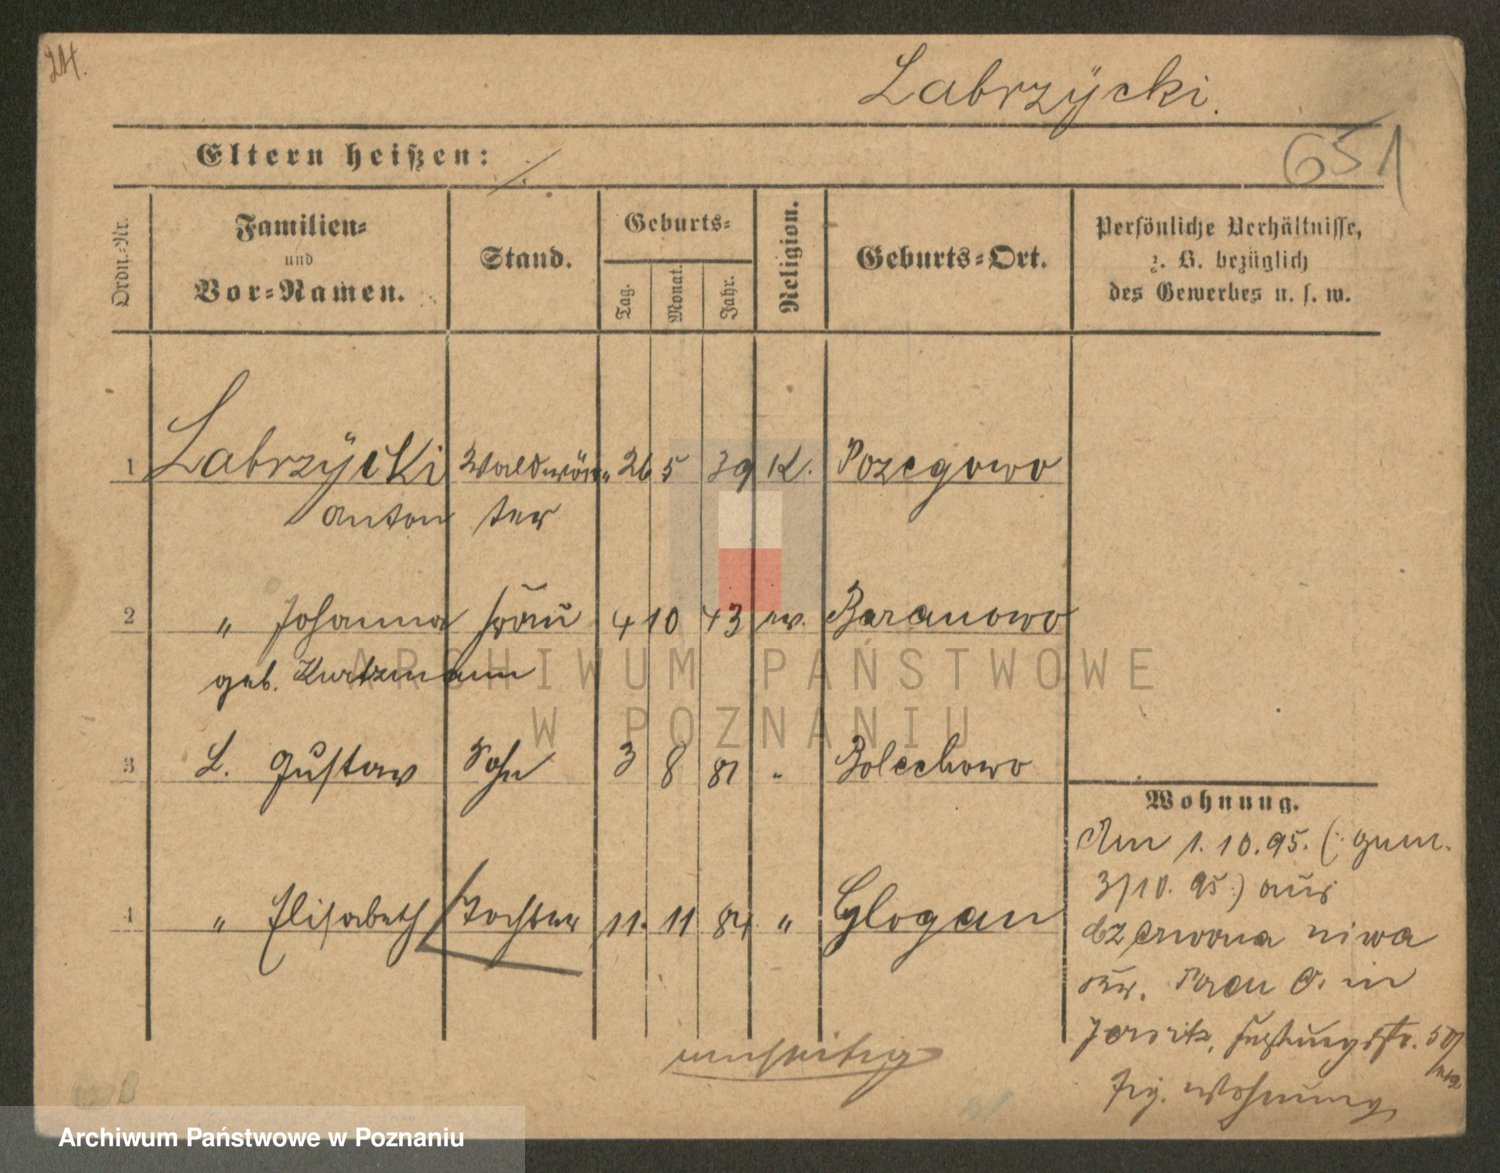 24.
Labrzÿcki.
Eltern heißen:
651
Ordn.-Nr.
Familien-
und
Vor-Namen.
Stand.
Geburts-
Tag.
Monat.
Jahr.
Religion.
Geburts-Ort.
Persönliche Verhältnisse,
z. B. bezüglich
des Gewerbes u. s. w.
1 Labrzÿcki Waldwär- 26 5 39 K. Pozegowo
Anton ter
2 " Johanna Frau 4 10 43 ev. Baranowo
geb. Kurtzmann
ARCHIWUM PAŃSTWOWE
W POZNANIU
3 L. Gustav Sohn 3 8 81 " Bolechowo
4 " Elisabeth Tochter 11. 11 84 " Glogau
Wohnung.
Am 1. 10. 95. (: gem.
3/10. 95 :) aus
niwa
Posen O. in
Jersitz,
Wohnung
umseitig
Archiwum Państwowe w Poznaniu